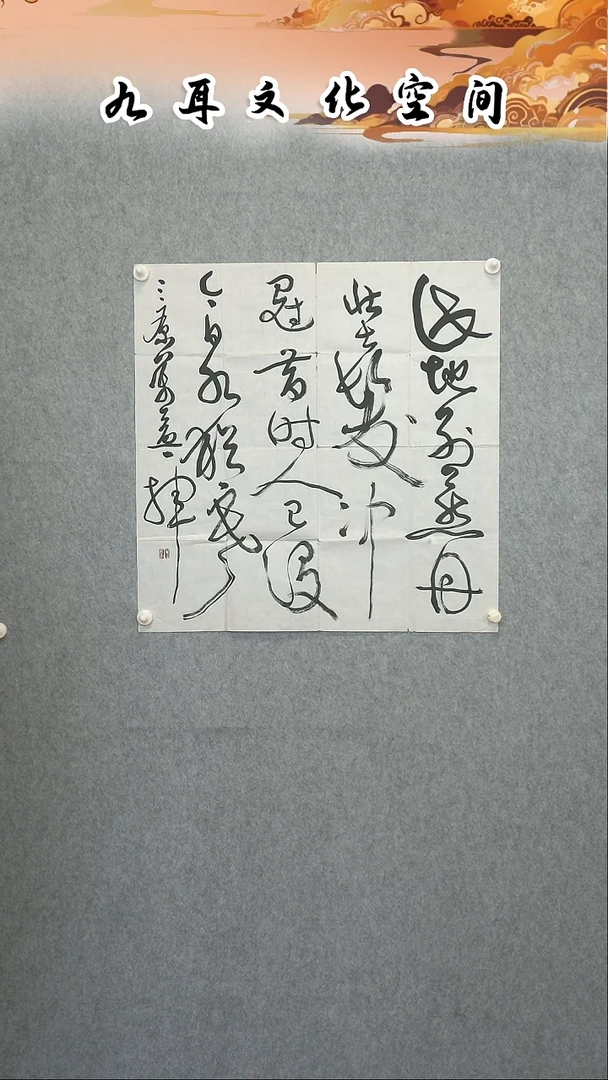 九耳文化空间
此地别燕丹
壮士发冲
冠昔时人已没
今日水犹寒